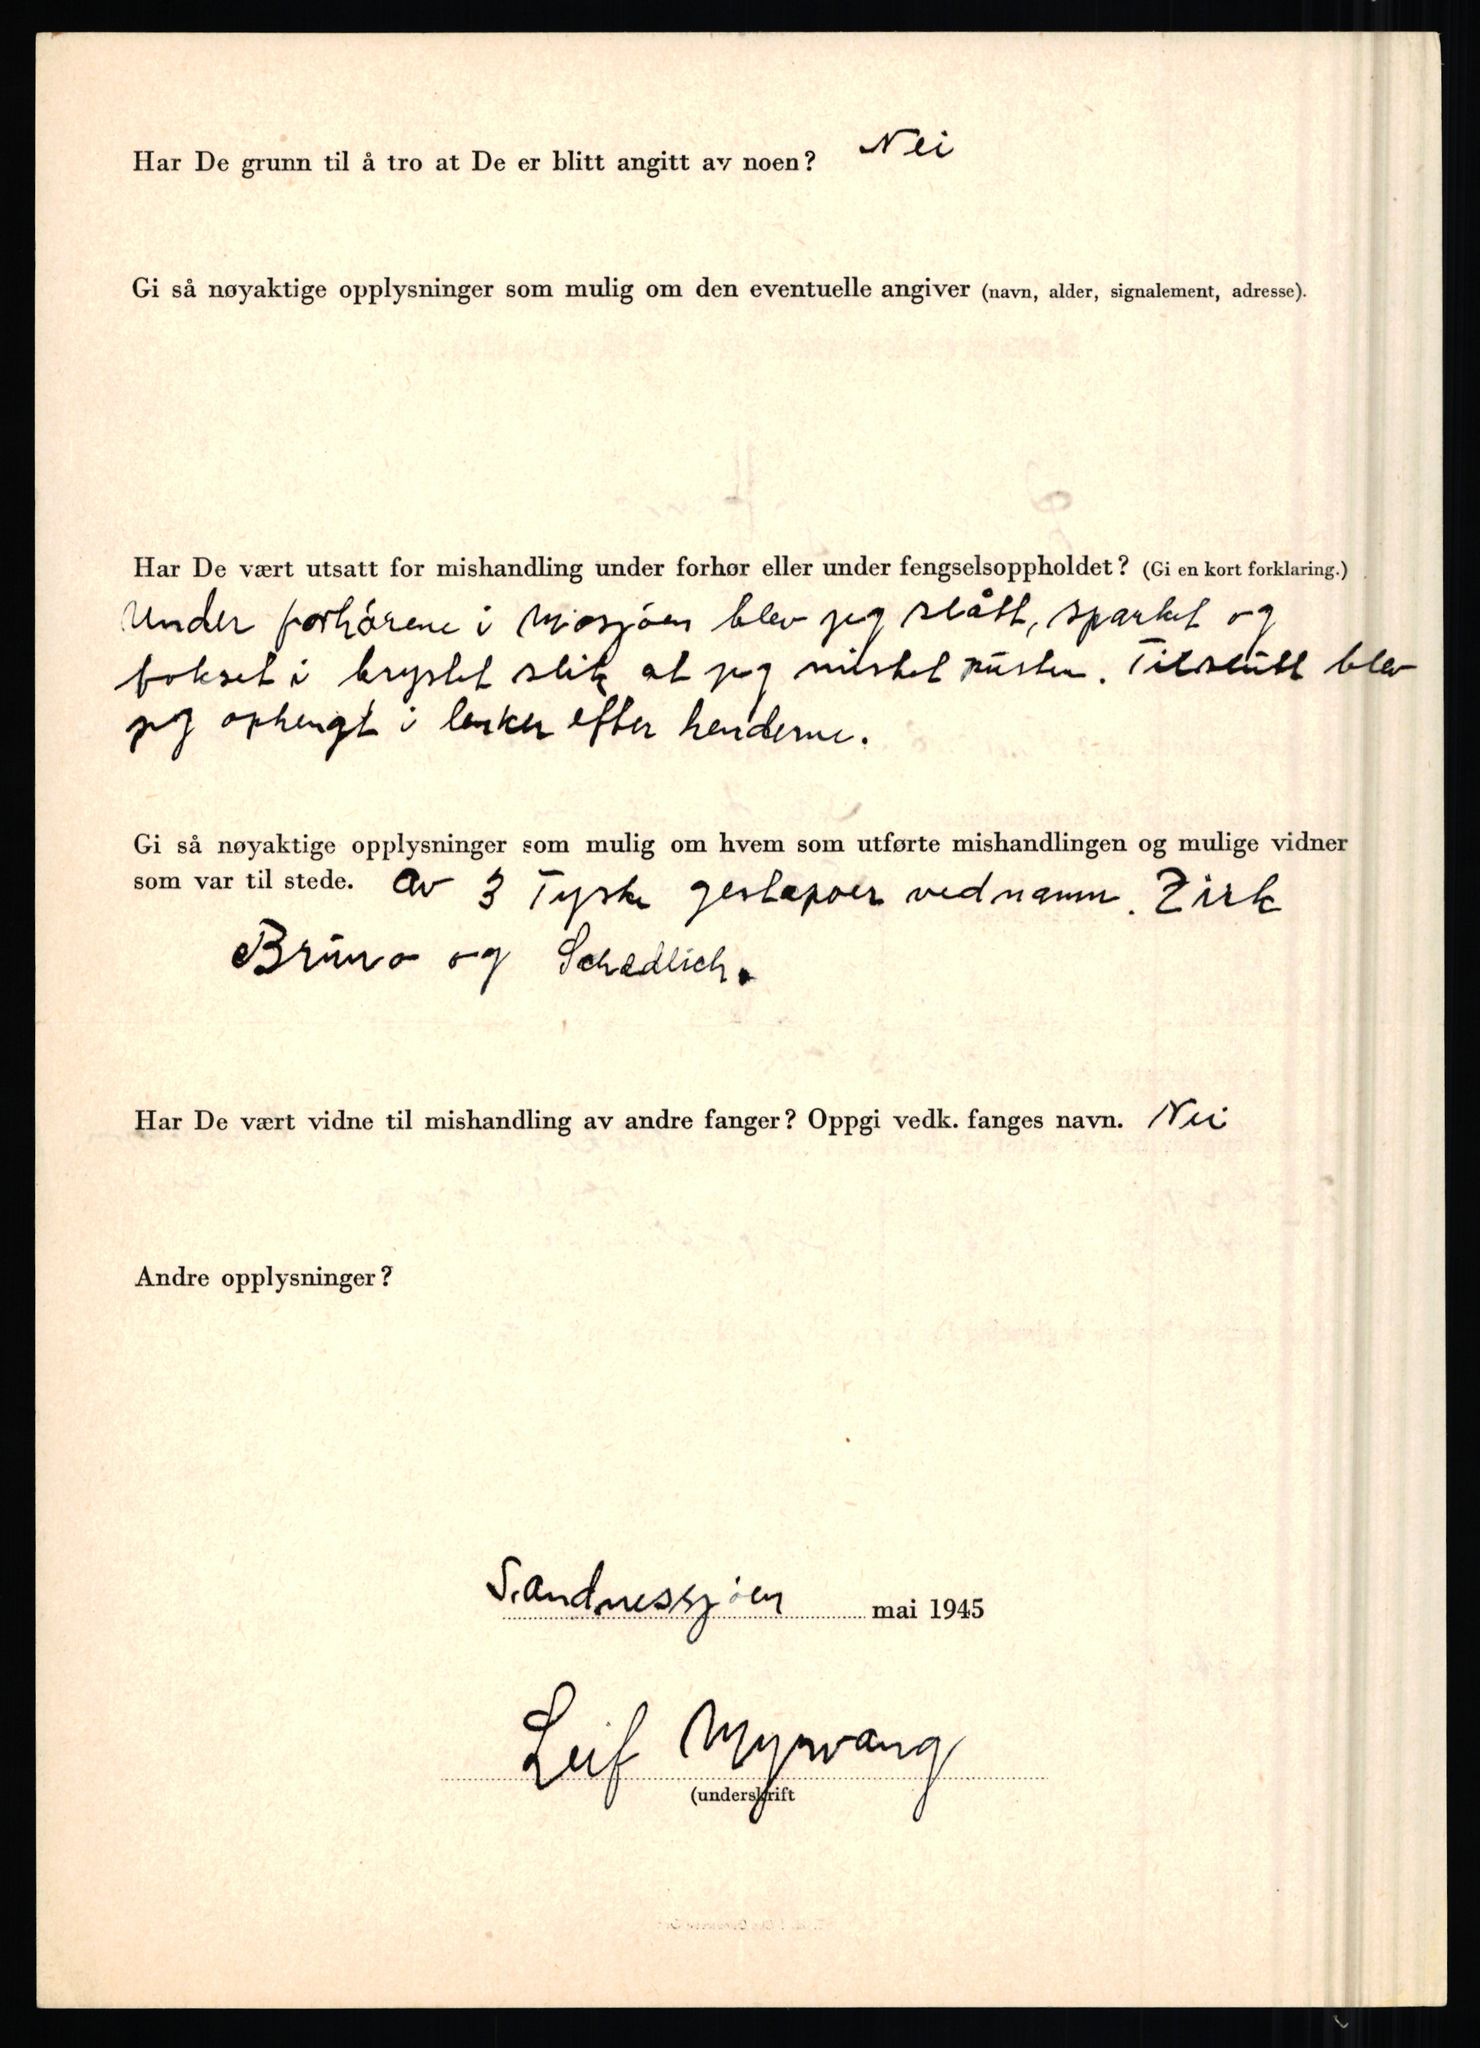 Har De grunn til å tro at De er blitt angitt av noen? Nei
Gi så nøyaktige opplysninger som mulig om den eventuelle angiver (navn, alder, signalement, adresse).
Har De vært utsatt for mishandling under forhør eller under fengselsoppholdet? (Gi en kort forklaring.)
Under forhørene i Mosjøen blev jeg slått, sparket og
bokset i brystet slik at jeg mistet pusten. Tilslutt blev
jeg ophengt i lenker efter henderne.
Gi så nøyaktige opplysninger som mulig om hvem som utførte mishandlingen og mulige vidner
som var til stede. Av 3 Tyske gestapoer ved namn. Zirk
Bruno og Schedlich.
Har De vært vidne til mishandling av andre fanger? Oppgi vedk. fanges navn. Nei
Andre opplysninger?
Sandnessjøen mai 1945
Leif Myrvang
(underskrift